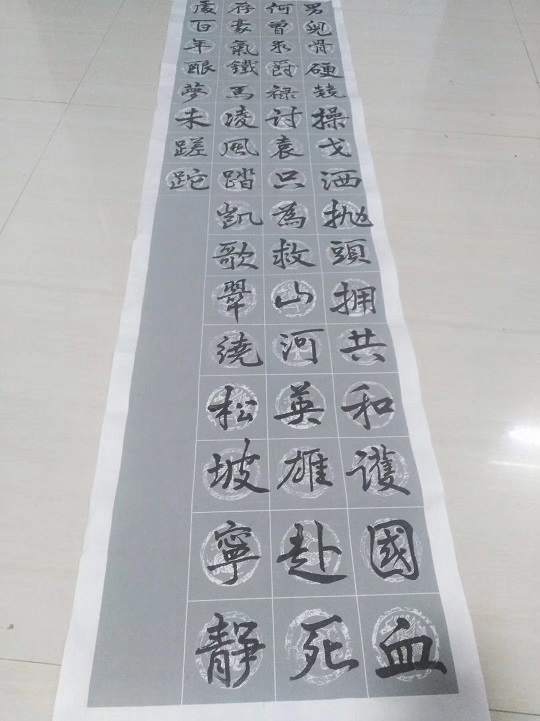 男兒骨硬競操戈洒抛頭拥共和護國血
何曾求爵禄討袁只為救山河英雄赴死
存豪氣鐵馬凌風踏凱歌翠繞松坡寧靜
處百年酣夢未蹉跎